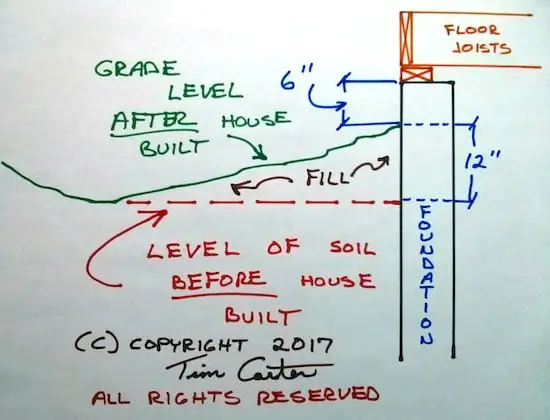 FLOOR
JOISTS
GRADE
LEVEL
AFTER HOUSE
BUILT
6"
12"
FILL
FOUNDATION
LEVEL OF SOIL
BEFORE HOUSE
BUILT
(C) COPYRIGHT 2017
Tim Carter
ALL RIGHTS RESERVED